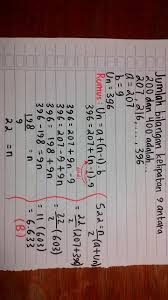 Jumlah bilangan kelipatan 9 antara
200 dan 400 adalah...
207, 216, ..., 396
a = 207
b = 9
Un = 396
Rumus: Un = a + (n-1) . b
396 = 207 + (n-1) . 9
396 = 207 - 9 + 9n
396 = 207 + 9n - 9
396 = 198 + 9n
396 - 198 = 9n
198
9
22 = n
S22 = n/2 (a + Un)
= 22/2 (207 + 396)
= 22/2 (603)
= 11 (603)
= 6.633
(B)